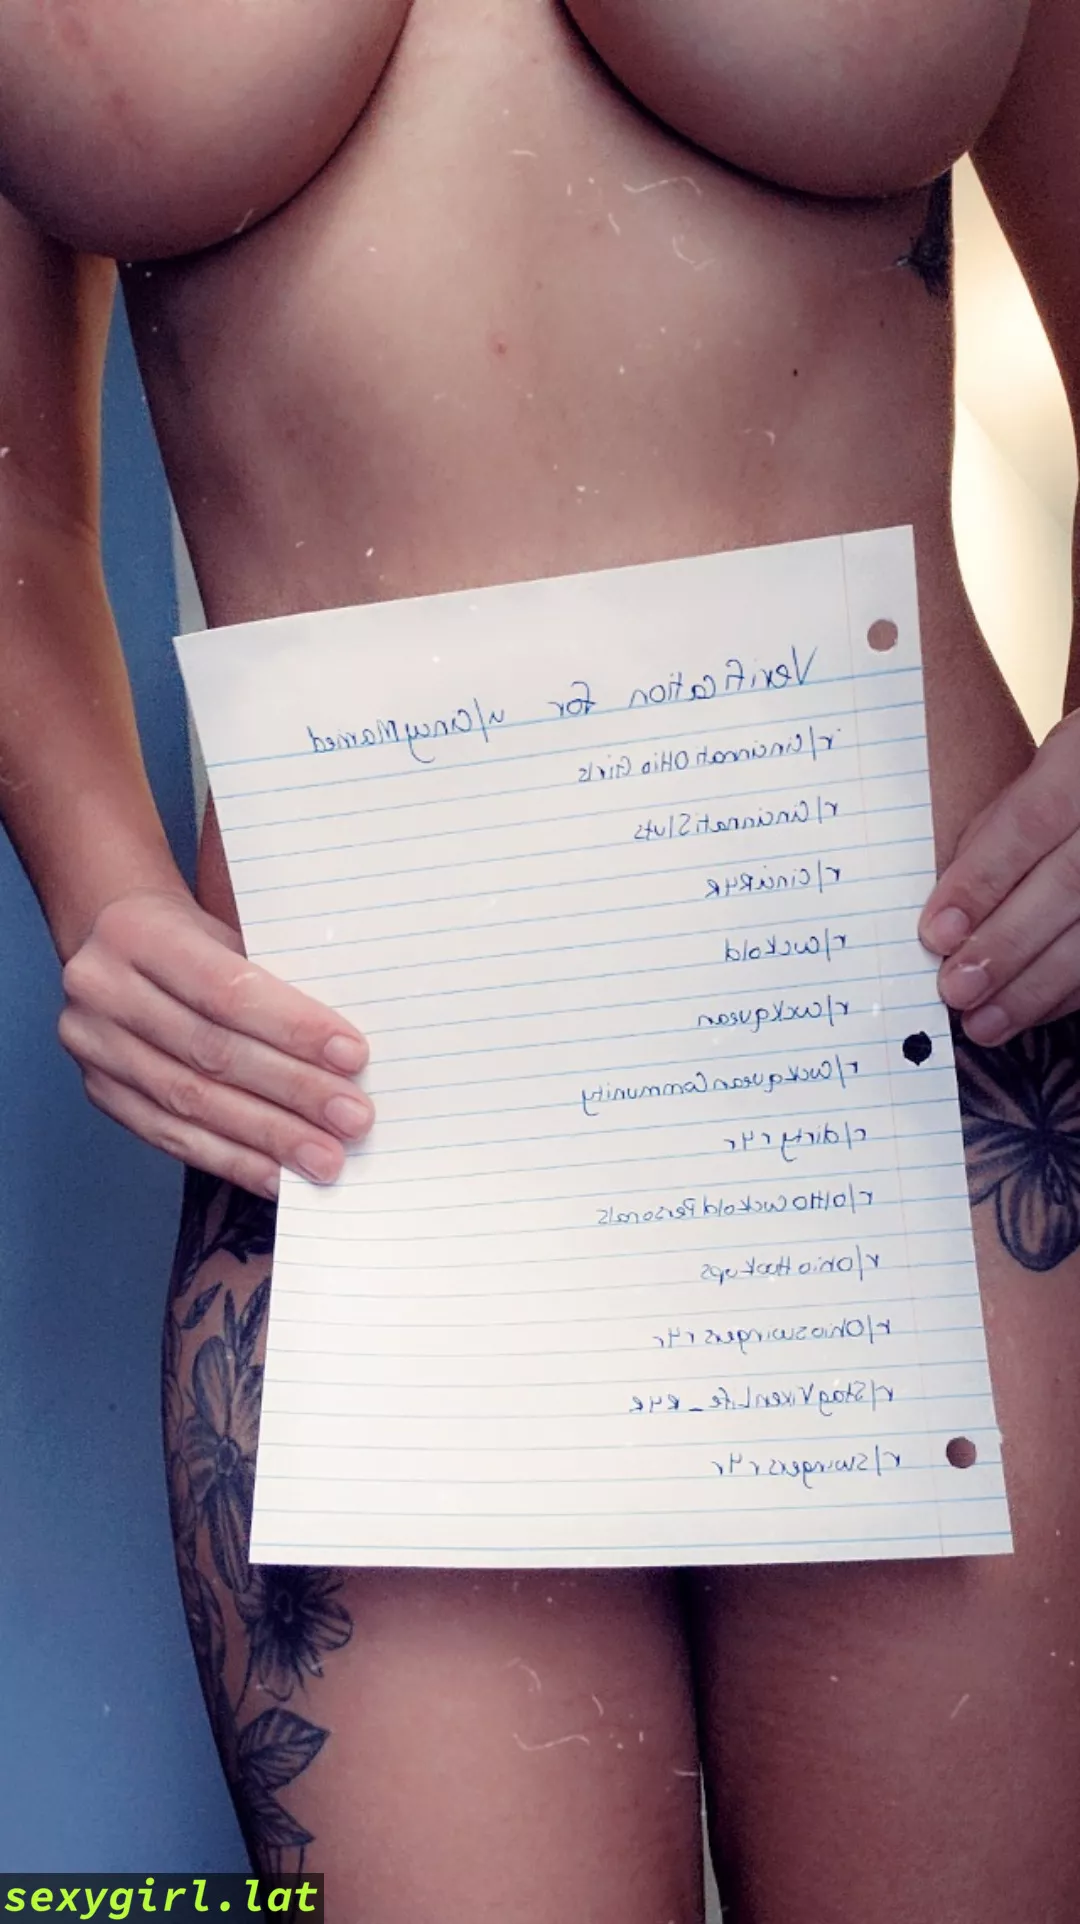 Verification for u/CincyMarried
r/CincinnatiOHioGirls
r/CincinnatiSluts
r/CinciR4R
r/Cuckold
r/Cuckquean
r/CuckqueanCommunity
r/dirtyr4r
r/OHIOCuckoldPersonals
r/OhioHookups
r/Ohioswingersr4r
r/StagVixenLife_R4R
r/swingersr4r
sexygirl.lat